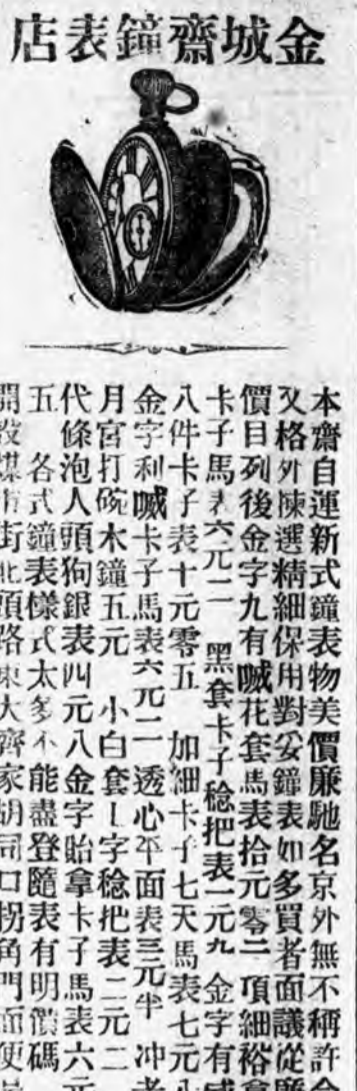 金城齋鐘表店
本齋自運新式鐘表物美價廉馳名京外無不稱許
又格外揀選精細保用對妥鐘表如多買者面議從
價目列後金字九有嘁花套馬表拾元零二 頂細裕
卡子馬表六元二 黑套卡子稔把表一元九 金字有
八件卡子表十元零五 加細卡子七天馬表七元八
金字利嘁卡子馬表六元二 透心平面表三元半 冲
月宮打碗木鐘五元 小白套上字稔把表二元二
代條泡人頭狗銀表四元八金字貽拿卡子馬表六元
五 各式鐘表樣式太多不能盡登隨表有明價碼
開設煤市街北頭路東大齊家胡同口拐角門面便是